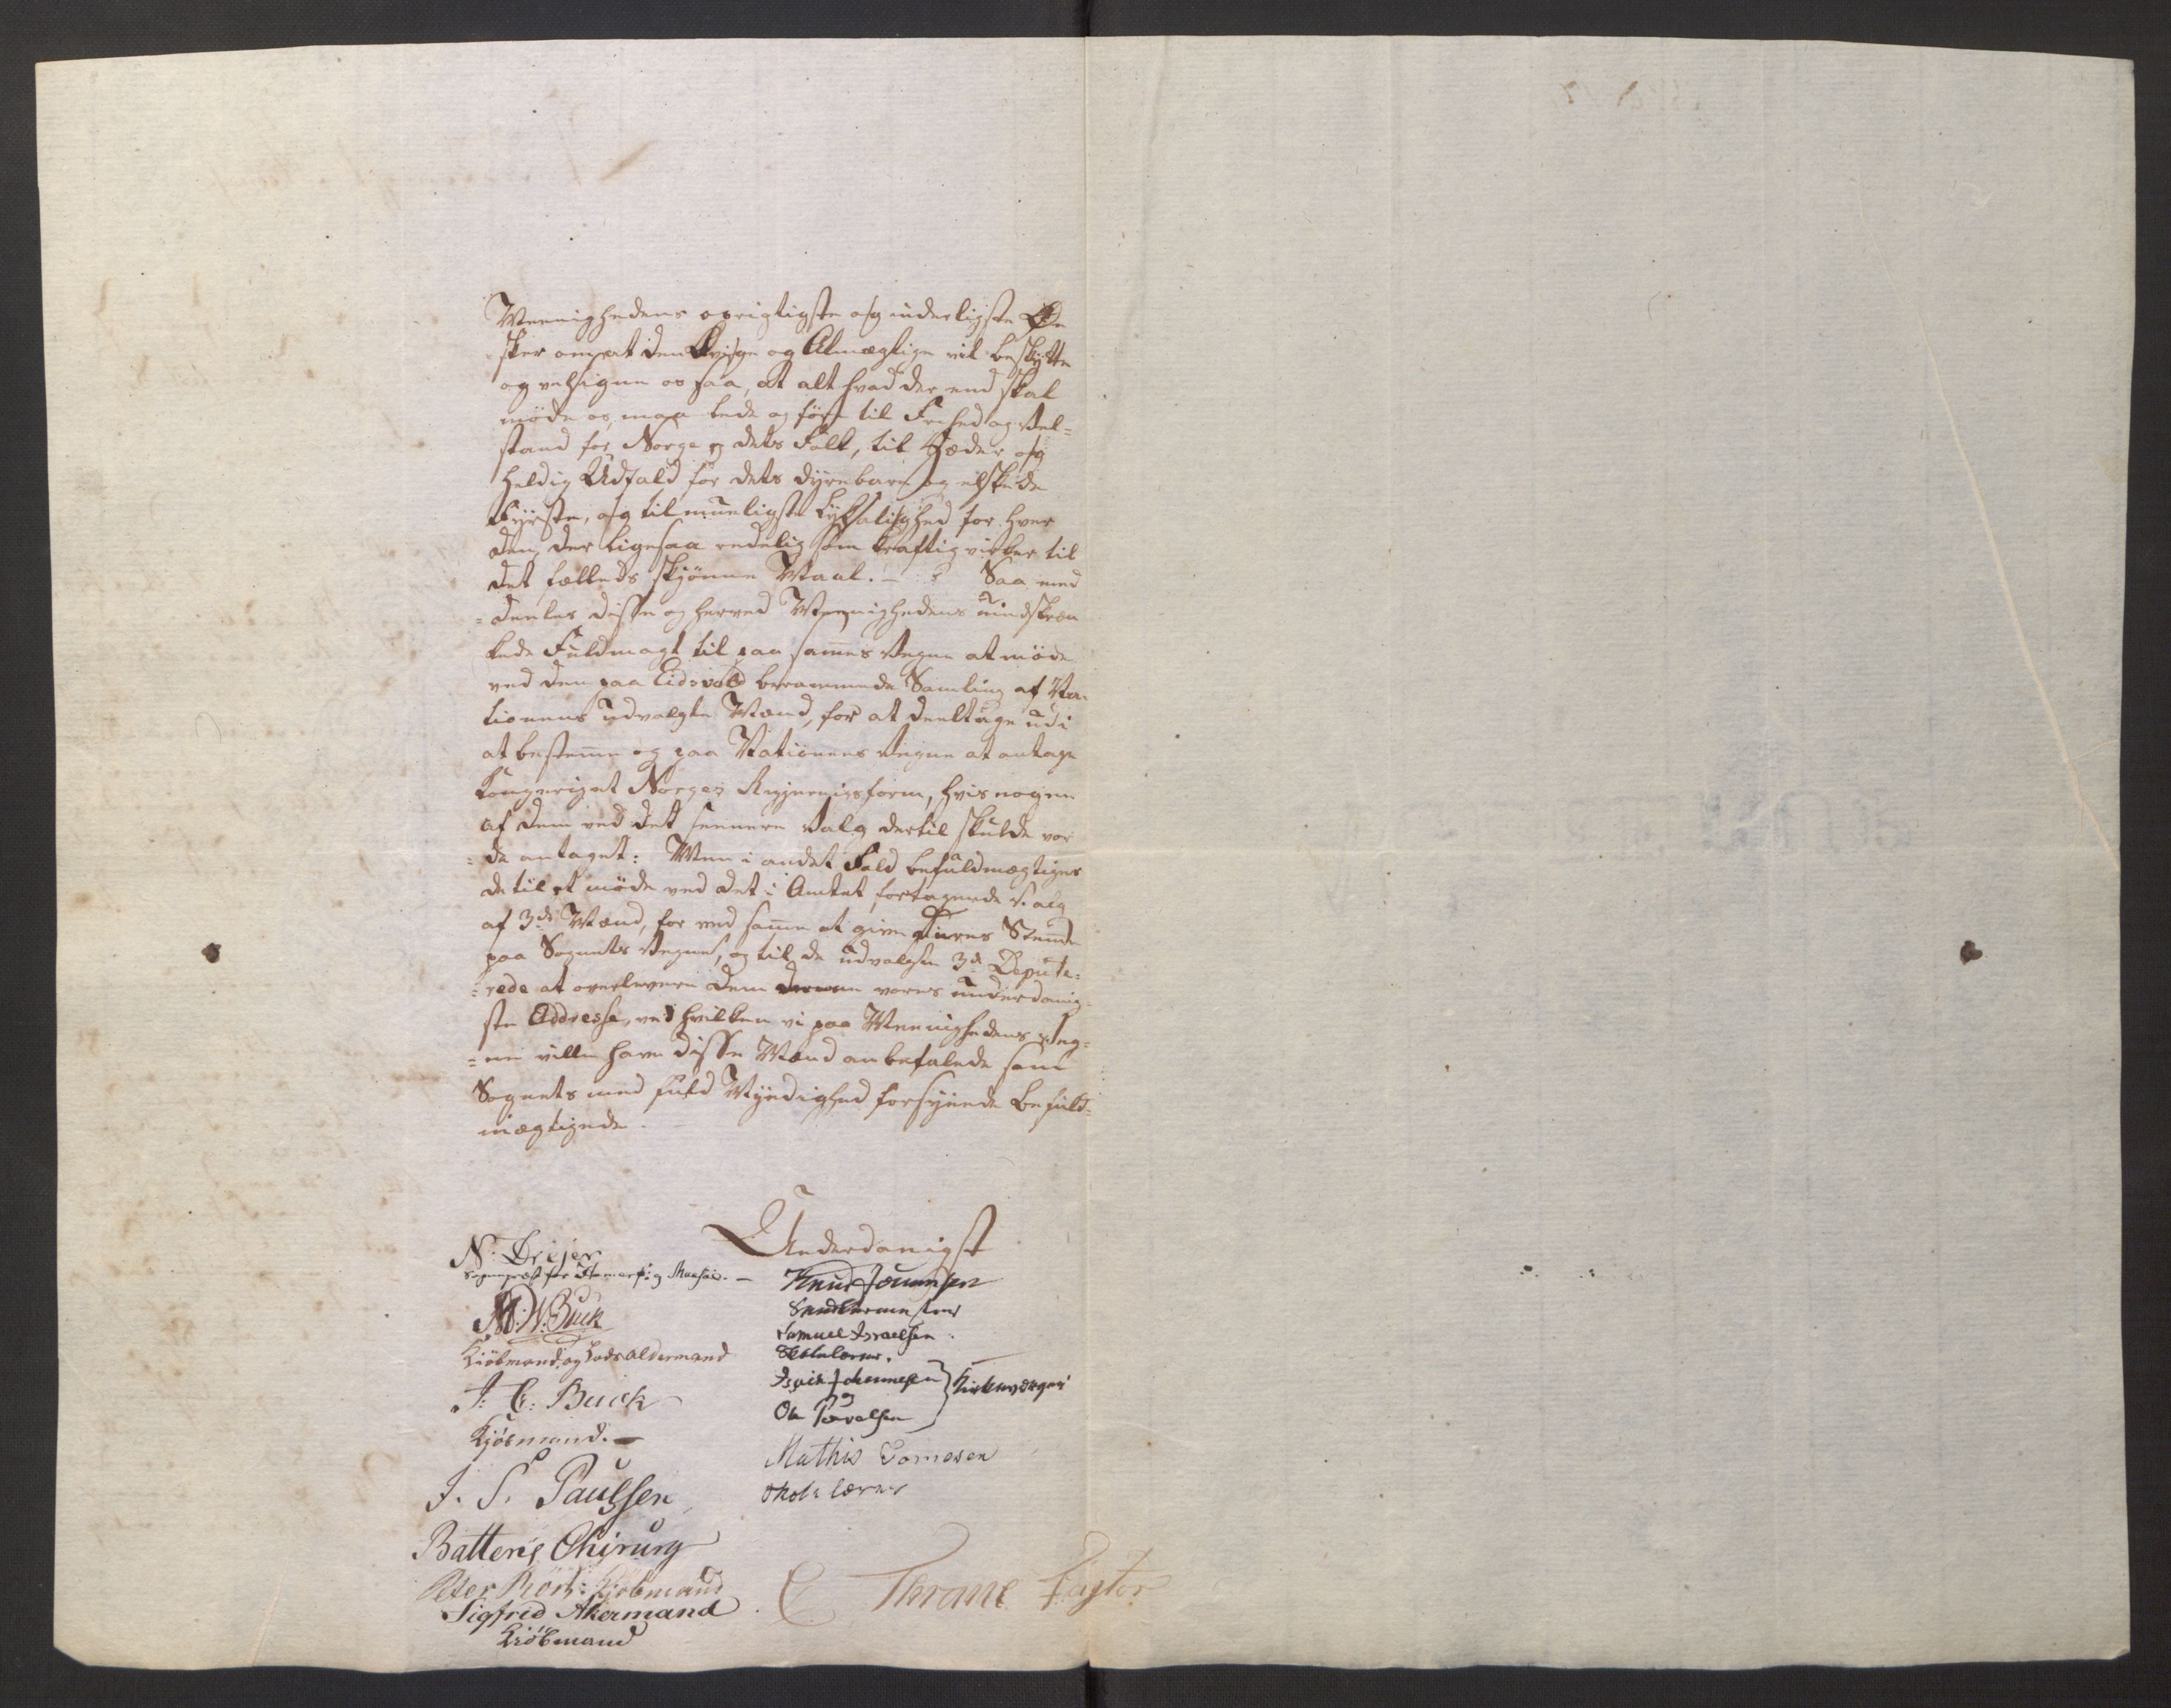 Meenighedens oprigtigste og inderligste Øn
sker om, at den Evige og Almægtige vil beskytte
og velsigne os saa, at alt hvad der end skal
möde os, maa lede og före til Frihed og Vel=
stand for Norge og dets Folk, til Hæder og
heldig Udfald for dets dyrebare og elskede
Fyrste, og til mueligste Lyksalighed for hver
den, der ligesaa redelig som kraftig virker til
det fælleds skjönne Maal. – Saa med
=deeles disse og herved Meenighedens uindskræn
kede Fuldmagt til paa sammes Vegne at möde
ved den paa Eidsvold berammede Samling af Na=
tionens udvalgte Mænd, for at deeltage udi
at bestemme og paa Nationens Vegne at antage
Kongeriget Norges Regjeringsform, hvis nogen
af dem ved det seenere Valg dertil skulde vor
=de antaget: Men i andet Fald befuldmægtiges
de til at möde ved det i Amtet foretagende Valg
af 3de Mænd, for ved samme at give deres Stemme
paa Sognets Vegne, og til de udvalgte 3de Depute=
=rede at overlevere dem denne vores underdanig=
ste Addresse, ved hvilken vi paa Meenighedens Veg=
=ne ville have disse Mænd anbefalede som
Sognets med fuld Myndighed forsynede Befuld=
mægtigede.
Underdanigst
N: Drejer
Sognepræst for Hamerf: og Maasöe. –
M: W: Buck
Kiöbmand og Lods Oldermand
J: C: Buck
Kjöbmand. –
J. P. Paulsen
Batterie Chirurg
Peter : Kjøbmand
Sigfried Akermand
Kiöbmand
Knud
Samuel Israelsen
Skolelærer.
Isach Johannesen } Kirkeværger
Ole Povelsen
Mathis
Skole lærer
C Thrane Fagtor